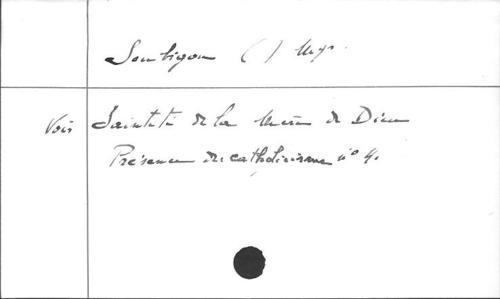 Soubigou ( ) Mgr.
Voir Sainteté de la Mère de Dieu
Présence du catholicisme n° 4.